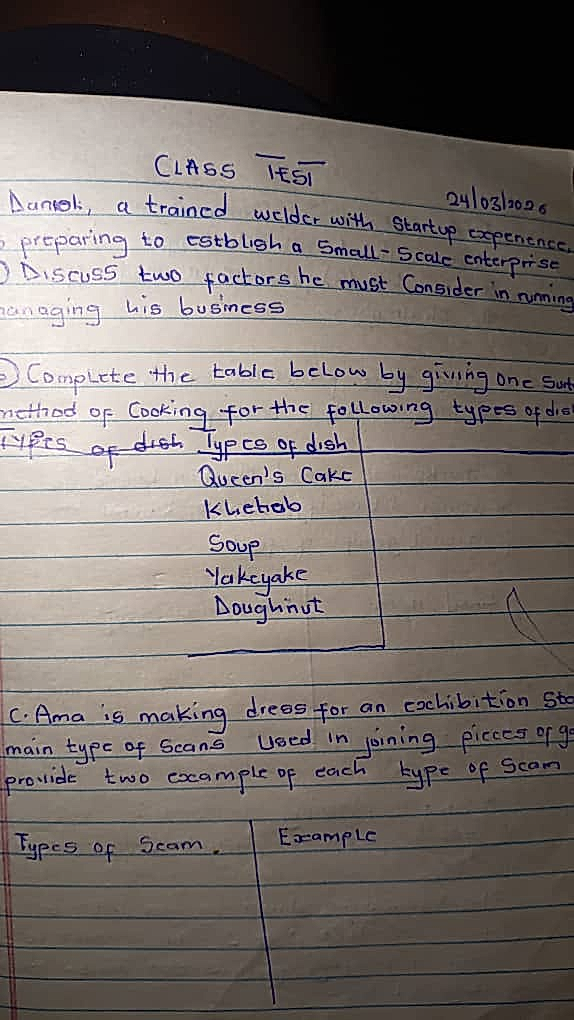 CLASS TEST
24/03/2026
Daniel, a trained welder with Startup experience,
preparing to establish a Small-Scale enterprise
Discuss two factors he must Consider in running
managing his business
Complete the table below by giving one
method of Cooking for the following types of dish
Types of dish Types of dish
Queen's Cake
Khebab
Soup
Yakeyake
Doughnut
C. Ama is making dress for an exhibition
main type of Seams Used in joining pieces of
provide two example of each type of Seam
Types of Seam. Example